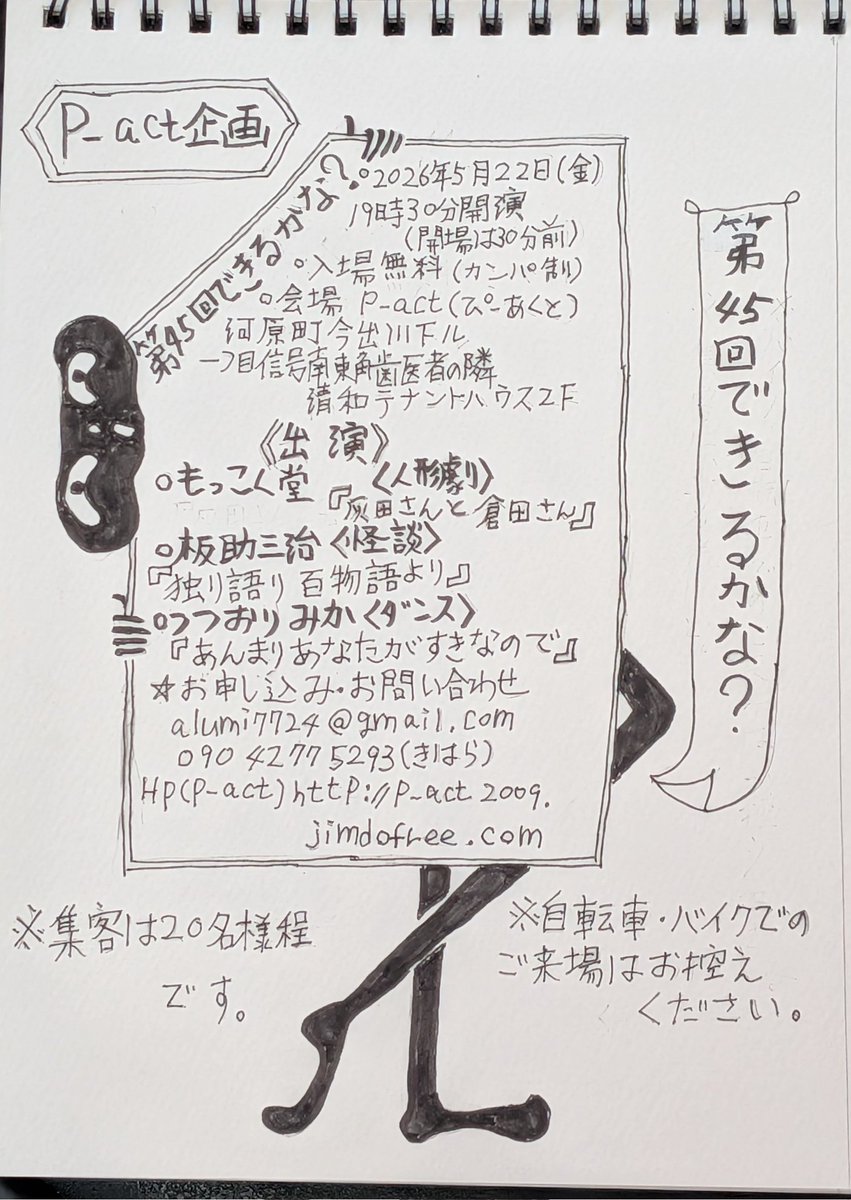 P_act企画
第45回できるかな?
○2026年5月22日(金)
19時30分開演
(開場は30分前)
○入場無料(カンパ制)
○会場 P_act(ぴーあくと)
河原町今出川下ル
一つ目信号南東角歯医者の隣
清和テナントハウス2F
《出演》
○もっこく堂 〈人形劇〉
『灰田さんと倉田さん』
○板助三治〈怪談〉
『独り語り 百物語より』
○つつおりみか〈ダンス〉
『あんまりあなたがすきなので』
☆お申し込み・お問い合わせ
alumi7724@gmail.com
090 4277 5293(きはら)
HP(P_act)http://P_act 2009.
jimdofree.com
第45回できるかな?
※集客は20名様程
です。
※自転車・バイクでの
ご来場はお控え
ください。